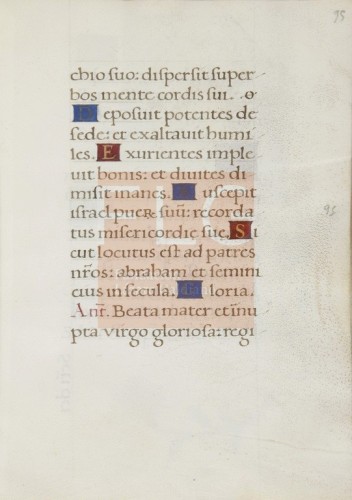 95
chio suo: dispersit super
bos mente cordis sui.
Deposuit potentes de
sede: et exaltauit humi
les. Exurientes imple
uit bonis: et diuites di
misit inanes. Suscepit
israel pueꝝ suū: recorda
tus misericordię suę. Si
cut locutus est ad patres
nr̄os: abraham et semini
eius in secula. Gloria.
Ant̄. Beata mater et īnu
pta virgo gloriosa: regi
95